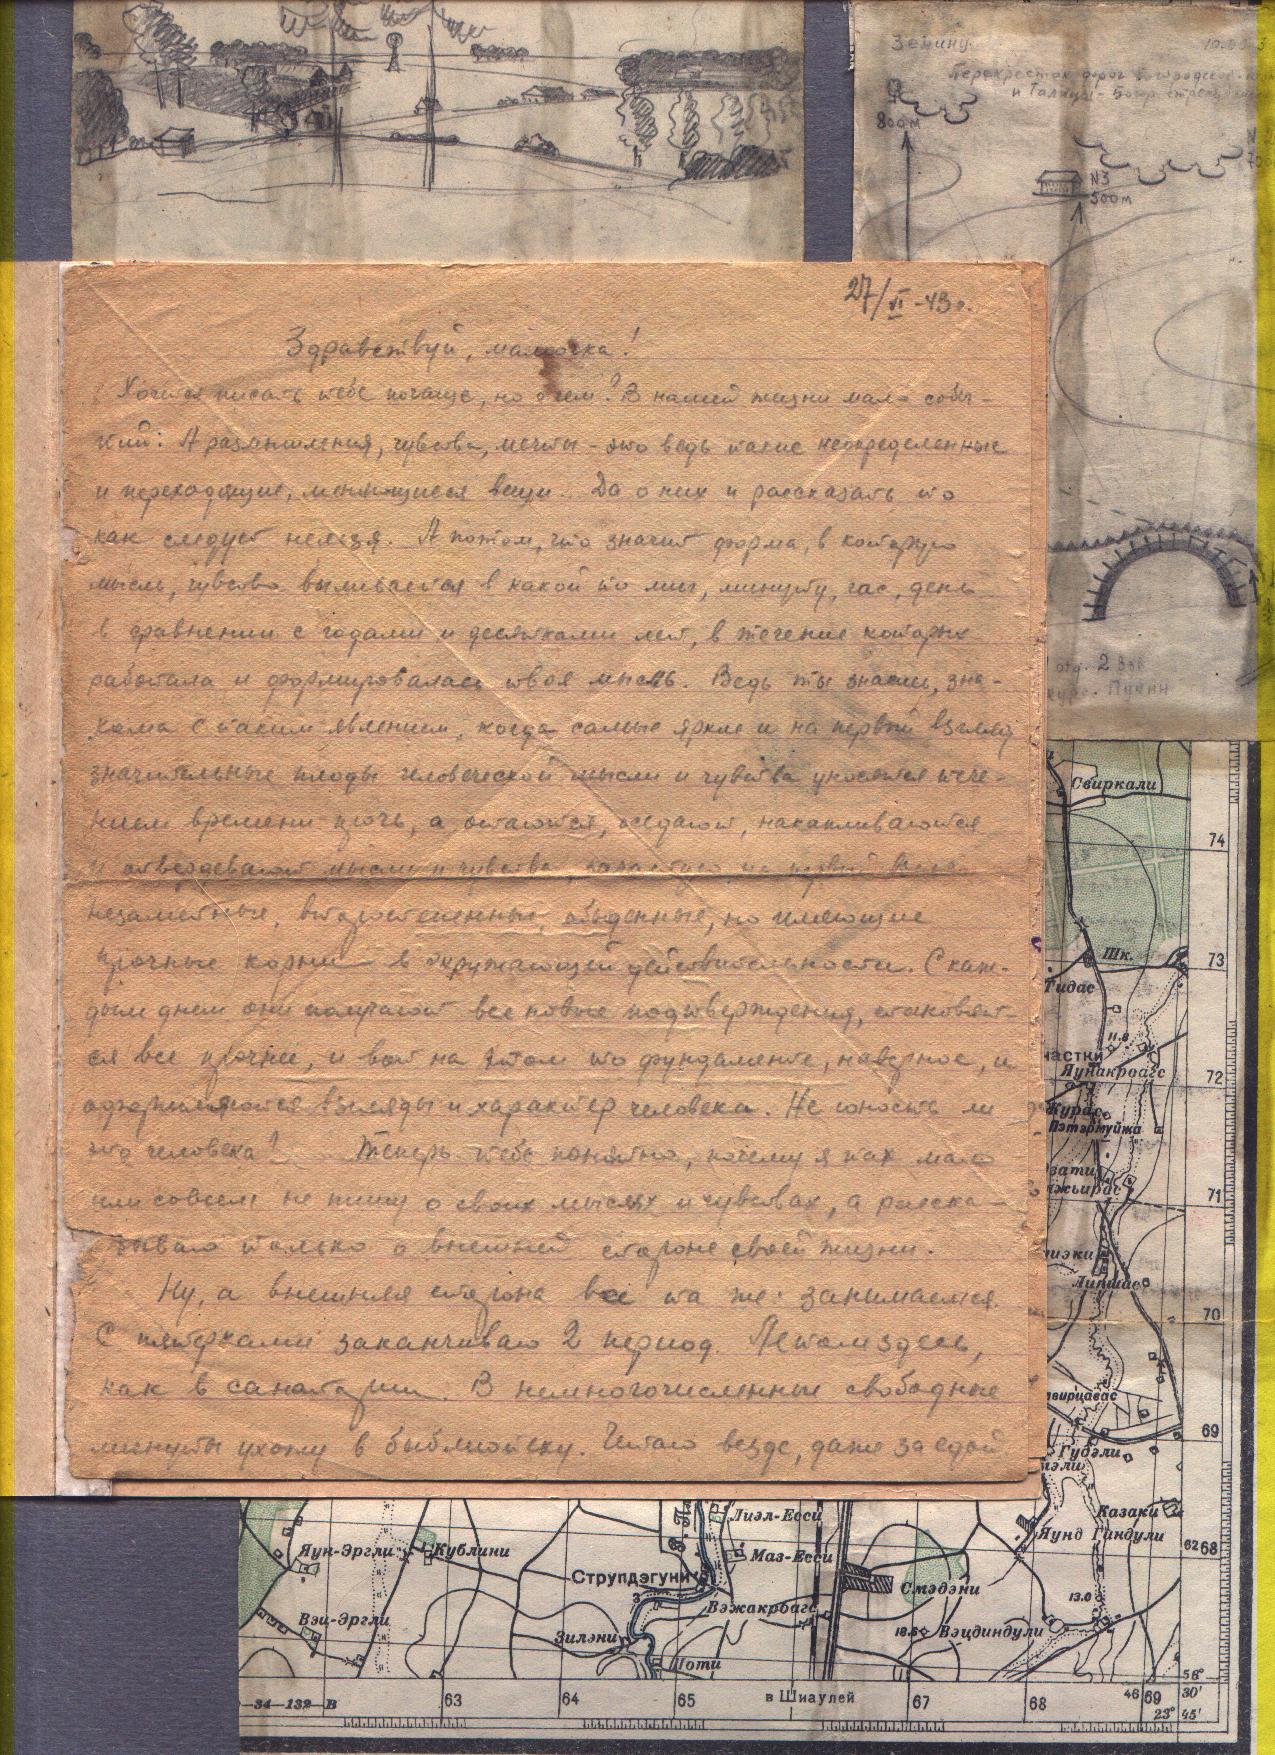 Зевину.
Перекресток дорог
и Галицы - Бояр
800м
N3
500м
27/VI -43г.
Здравствуй, мамочка!
Хочется писать тебе почаще, но о чем? В нашей жизни мало собы-
тий: А размышления, чувства, мечты - это ведь такие неопределенные
и переходящие, меняющиеся вещи. Да о них и рассказать то
как следует нельзя. А потом, что значит форма, в которую
мысль, чувство выливается в какой то миг, минуту, час, день
в сравнении с годами и десятками лет, в течение которых
работала и формировалась твоя мысль. Ведь ты знаешь, зна-
кома с таким явлением, когда самые яркие и на первый взгляд
значительные плоды человеческой мысли и чувства уносятся тече-
нием времени прочь, а остаются, оседают, накапливаются
и отвердевают мысли и чувства, на первый
незаметные, второстепенные, обыденные, но имеющие
прочные корни в окружающей действительности. С каж-
дым днем они получают все новые подтверждения, становят-
ся все прочнее, и вот на этом то фундаменте, наверное, и
взгляды и характер человека. Не юность ли
это человека? Теперь тебе понятно, почему я так мало
или совсем не пишу о своих мыслях и чувствах, а расска-
зываю только о внешней стороне своей жизни.
Ну, а внешняя сторона все та же: занимаемся.
С пятерками заканчиваю 2 период. Летом здесь,
как в санатории. В немногочисленные свободные
минуты ухожу в библиотеку. Читаю везде, даже за едой
отд. 2 взв
курс. Пучин
Свиркали
74
Шк.
73
Тидас
11.8
частки
Яунакроагс
72
Журас
Пэтэрмуйжа
71
Липшас
70
69
Гудэли
Казаки
Яунд Гиндули
6268
13.0
Лиэл-Есси
Маз-Есси
Струпдэгуни
Яун-Эргли
Кублини
Смэдэни
Вэжакрбагс
Вэц-Эргли
18.6
Вэцдиндули
Зилэни
Шоти
-34-132-В
63
64
65
в Шяуляй
67
68
4669
56°
30'
23° 45'